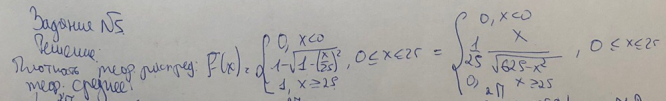 Задание №5.
Решение:
Плотность теор распред: F(x)= { 0, x<0; 1-√(1-(x/25)²), 0≤x≤25; 1, x≥25 = { 0, x<0; 1/25 x/√(625-x²), 0≤x≤25; 0, x≥25
теор. среднее: